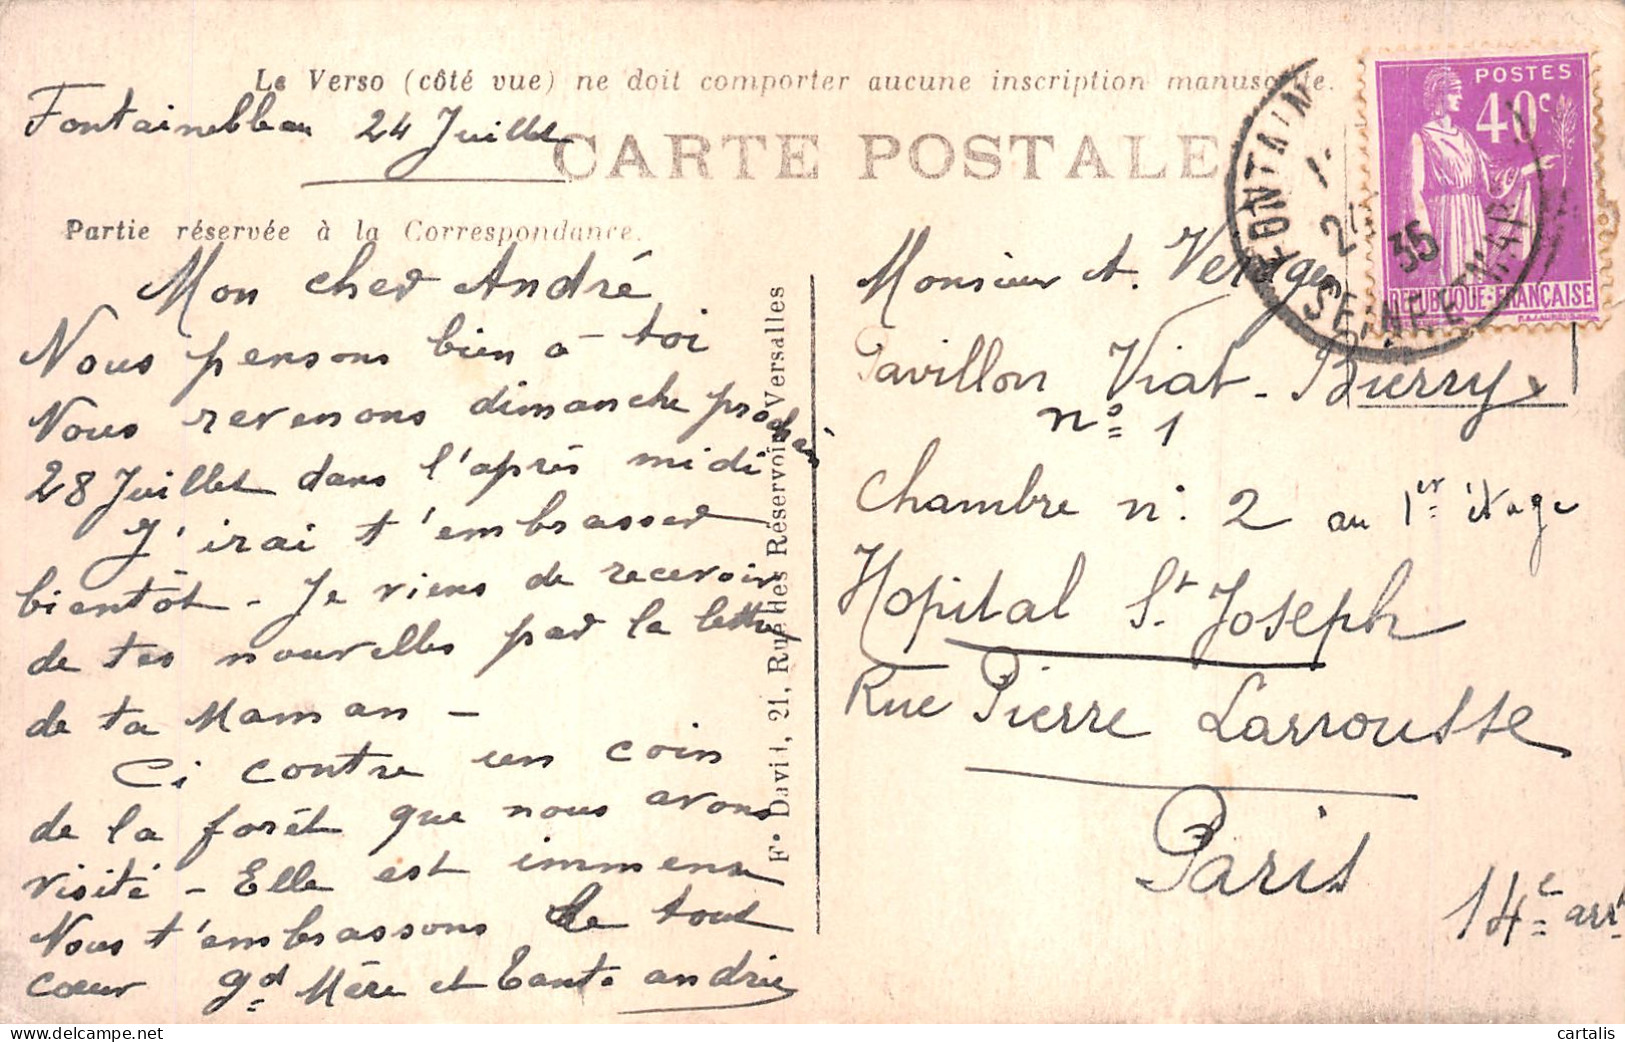 Le Verso (côté vue) ne doit comporter aucune inscription manuscrite.
Fontainebleau 24 Juillet
CARTE POSTALE
Partie réservée à la Correspondance.
Mon cher André
Nous pensons bien à toi
Nous revenons dimanche prochain
28 Juillet dans l'après midi
J'irai t'embrasser
bientôt - Je viens de recevoir
de tes nouvelles par la lettre
de ta Maman -
Ci contre un coin
de la forêt que nous avons
visité - Elle est immense
Nous t'embrassons de tout
cœur gd Mère et Tante andrée
F. David, 21, Rue des Réservoirs, Versailles
POSTES
40c
REPUBLIQUE-FRANÇAISE
FONTAIN
24
35
SEINE ET MAR
Monsieur A.
Pavillon Viat-Bierry
n° 1
Chambre n° 2 au 1er étage
Hopital St Joseph
Rue Pierre Larrousse
Paris
14e arrt
cartalis